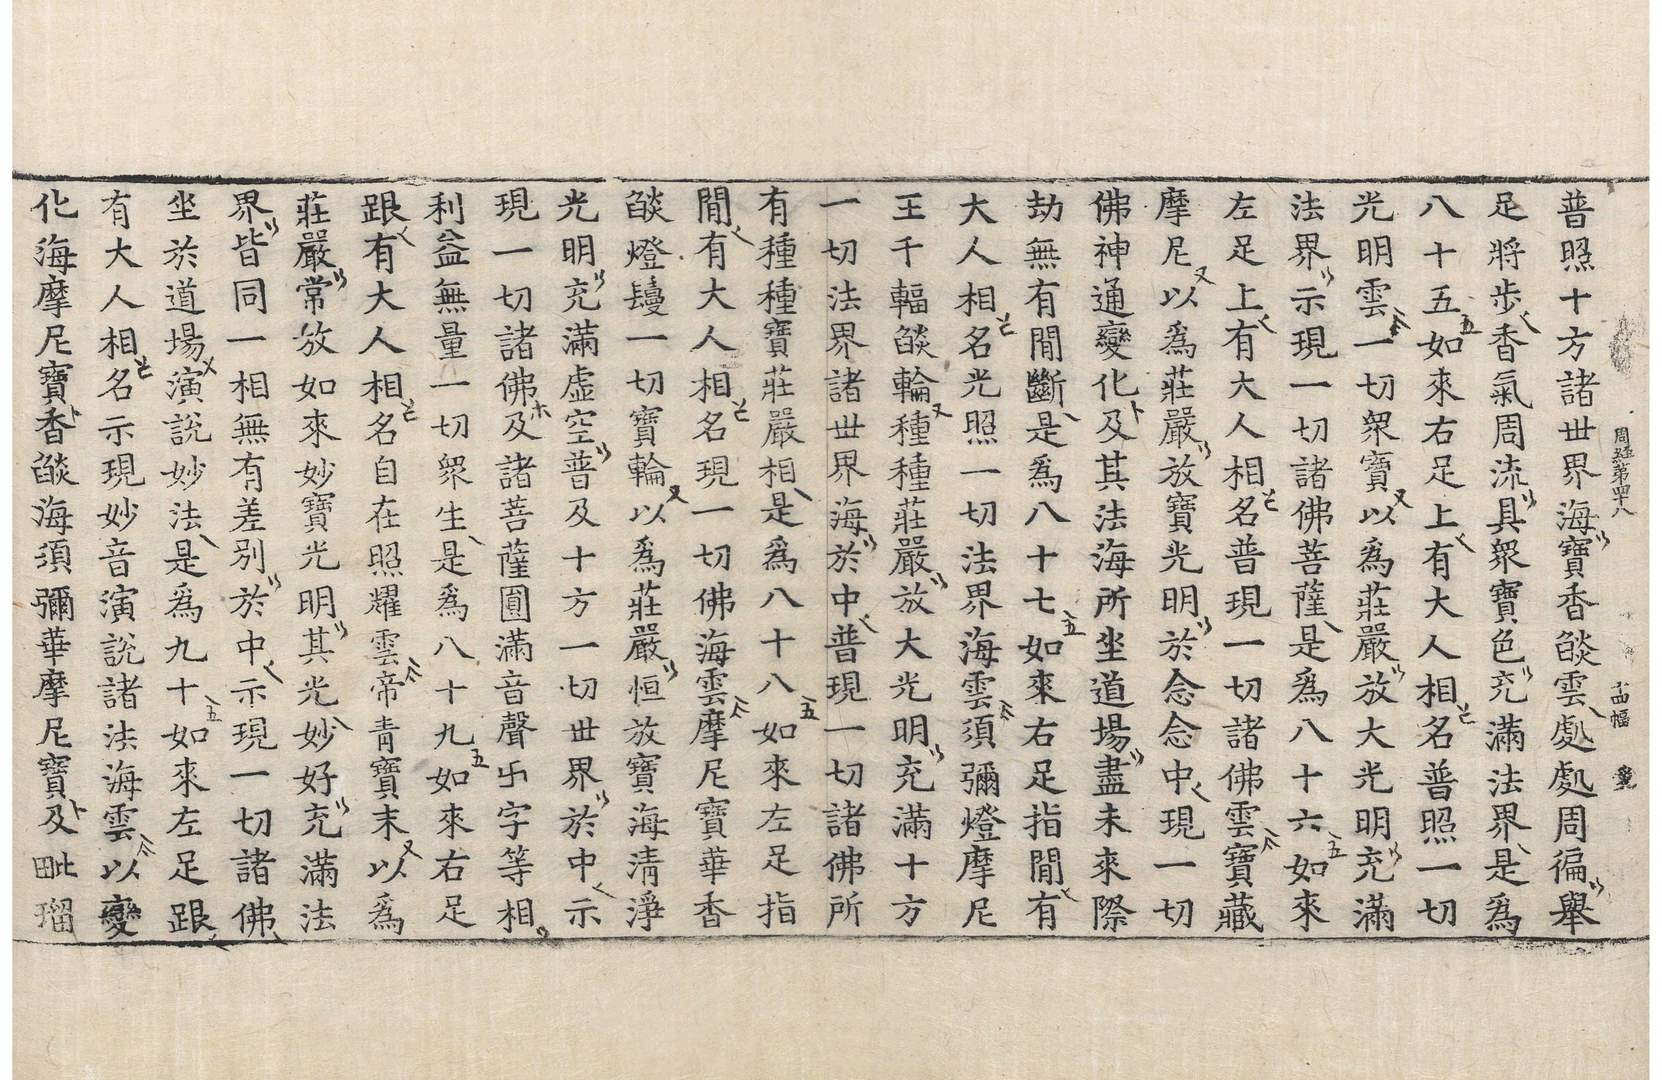 周經第四十八 十四幅
普照十方諸世界海寶香燄雲處處周徧舉
足將步香氣周流具眾寶色充滿法界是爲
八十五如來右足上有大人相名普照一切
光明雲一切眾寶以爲莊嚴放大光明充滿
法界示現一切諸佛菩薩是爲八十六如來
左足上有大人相名普現一切諸佛雲寶藏
摩尼以爲莊嚴放寶光明於念念中現一切
佛神通變化及其法海所坐道場盡未來際
劫無有間斷是爲八十七如來右足指間有
大人相名光照一切法界海雲須彌燈摩尼
王千輻燄輪種種莊嚴放大光明充滿十方
一切法界諸世界海於中普現一切諸佛所
有種種寶莊嚴相是爲八十八如來左足指
間有大人相名現一切佛海雲摩尼寶華香
燄燈鬘一切寶輪以爲莊嚴恒放寶海清淨
光明充滿虛空普及十方一切世界於中示
現一切諸佛及諸菩薩圓滿音聲卐字等相
利益無量一切眾生是爲八十九如來右足
跟有大人相名自在照耀雲帝青寶末以爲
莊嚴常放如來妙寶光明其光妙好充滿法
界皆同一相無有差別於中示現一切諸佛
坐於道場演說妙法是爲九十如來左足跟
有大人相名示現妙音演說諸法海雲以變
化海摩尼寶香燄海須彌華摩尼寶及毗瑠